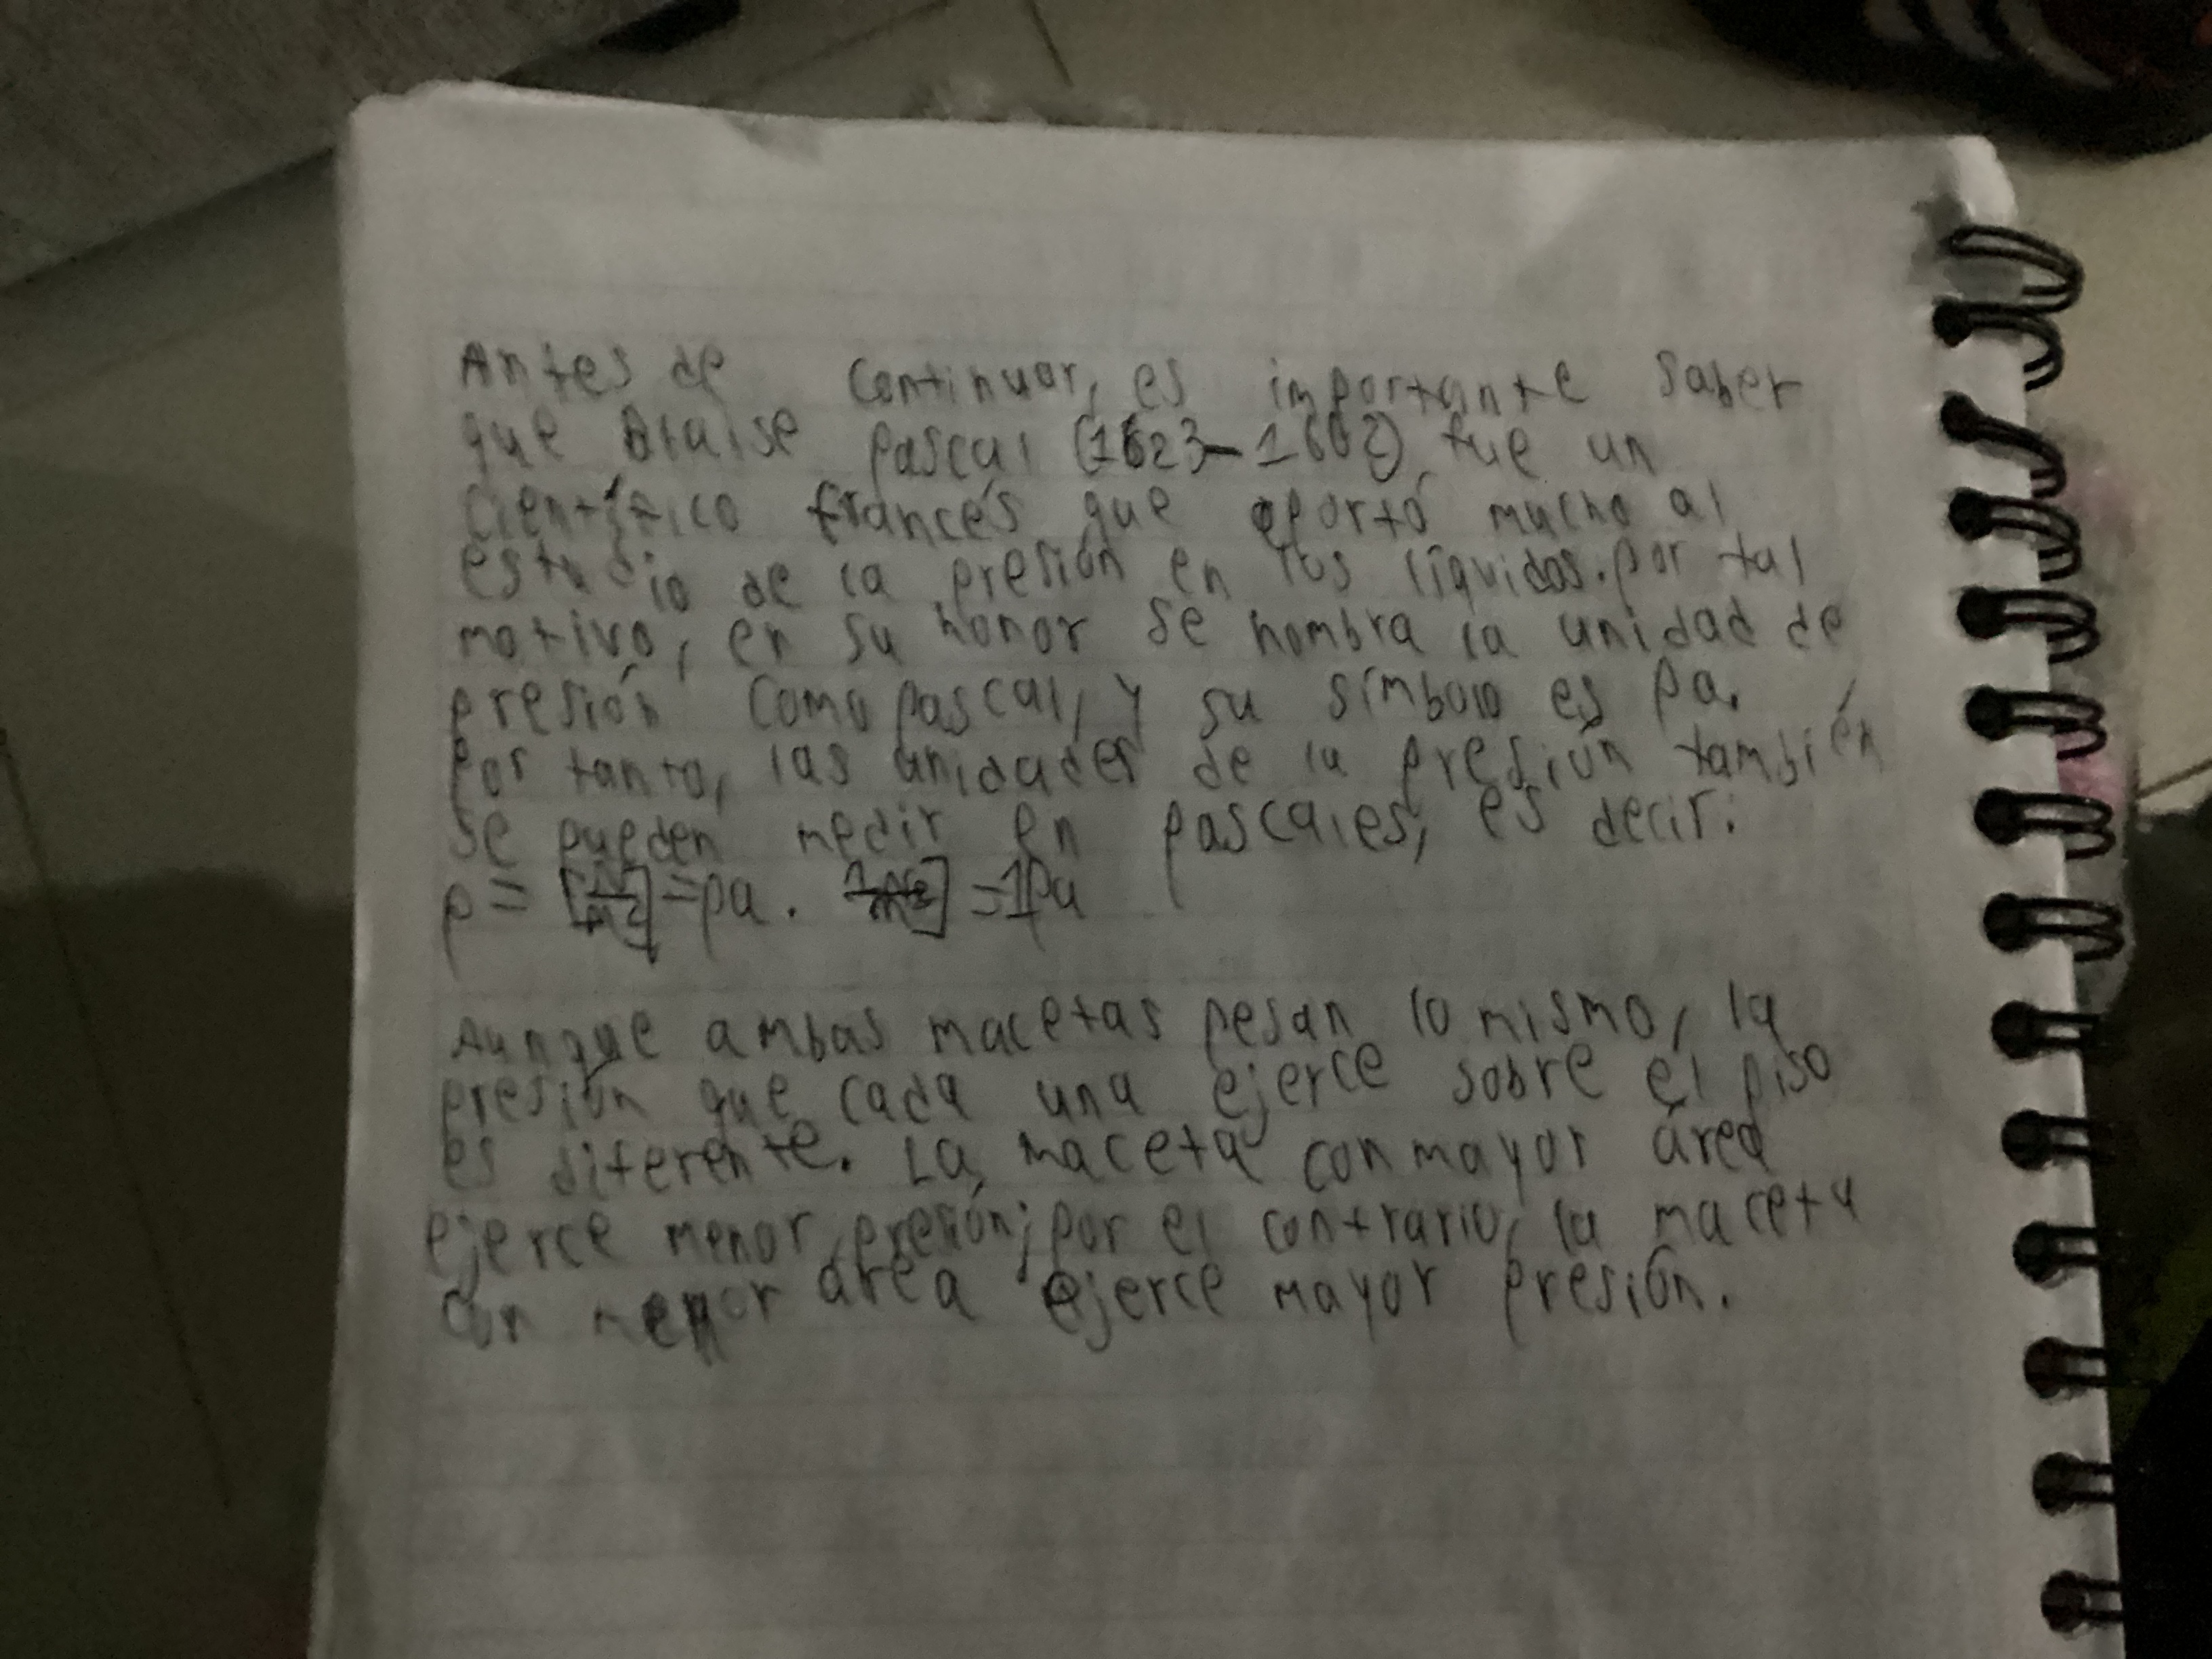 Antes de continuar, es importante saber
que Blaise pascal (1623-1662) fue un
Científico francés que aportó mucho al
estudio de la presión en los líquidos. por tal
motivo, en su honor se nombra la unidad de
presión como pascal, y su símbolo es pa.
Por tanto, las unidades de la presión también
se pueden medir en pascales, es decir:
p = [N/m2] = pa. = 1Pa
Aunque ambas macetas pesan lo mismo, la
presión que cada una ejerce sobre el piso
es diferente. La maceta con mayor área
ejerce menor presión; por el contrario, la maceta
con menor área ejerce mayor presión.